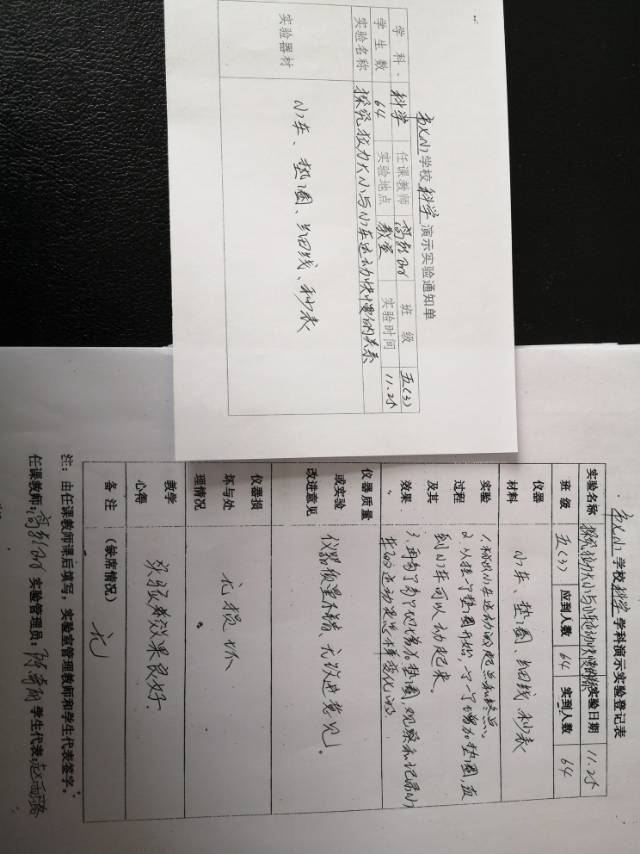 学校科学演示实验通知单
学科 科学 任课教师 班级 五(3)
学生数 64 实验地点 教室 实验时间 11.25
实验名称 探究拉力大小与小车运动快慢的关系
实验器材 小车、垫圈、细线、秒表
学校科学学科演示实验登记表
实验名称 探究拉力大小与小车运动快慢的关系 实验日期 11.25
班级 五(3) 应到人数 64 实到人数 64
仪器材料 小车、垫圈、细线、秒表
实验过程及其效果
1.标明小车运动的起点和终点。
2.从挂一个垫圈开始,一个一个增加垫圈,直
到小车可以动起来。
3.再两个两个地增加垫圈,观察和记录小
车的运动是怎样变化的。
仪器质量或实验改进意见 仪器质量不错、无改进意见。
仪器损坏与处理情况 无损坏
教学心得 实验效果良好。
备注 (缺席情况) 无
注:由任课教师课后填写,实验室管理教师和学生代表签字。
任课教师: 实验管理员: 学生代表: